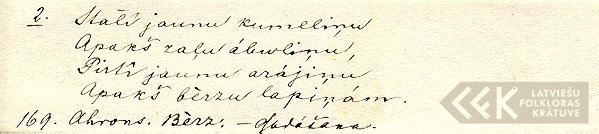 2. Stāti jaunu kumeliņu
Apakš zaļu ābuliņu,
Pirti jaunu arājiņu
Apakš bērzu lapiņām.
169. Ahrons. Bērz. –
LATVIEŠU
FOLKLORAS
KRĀTUVE